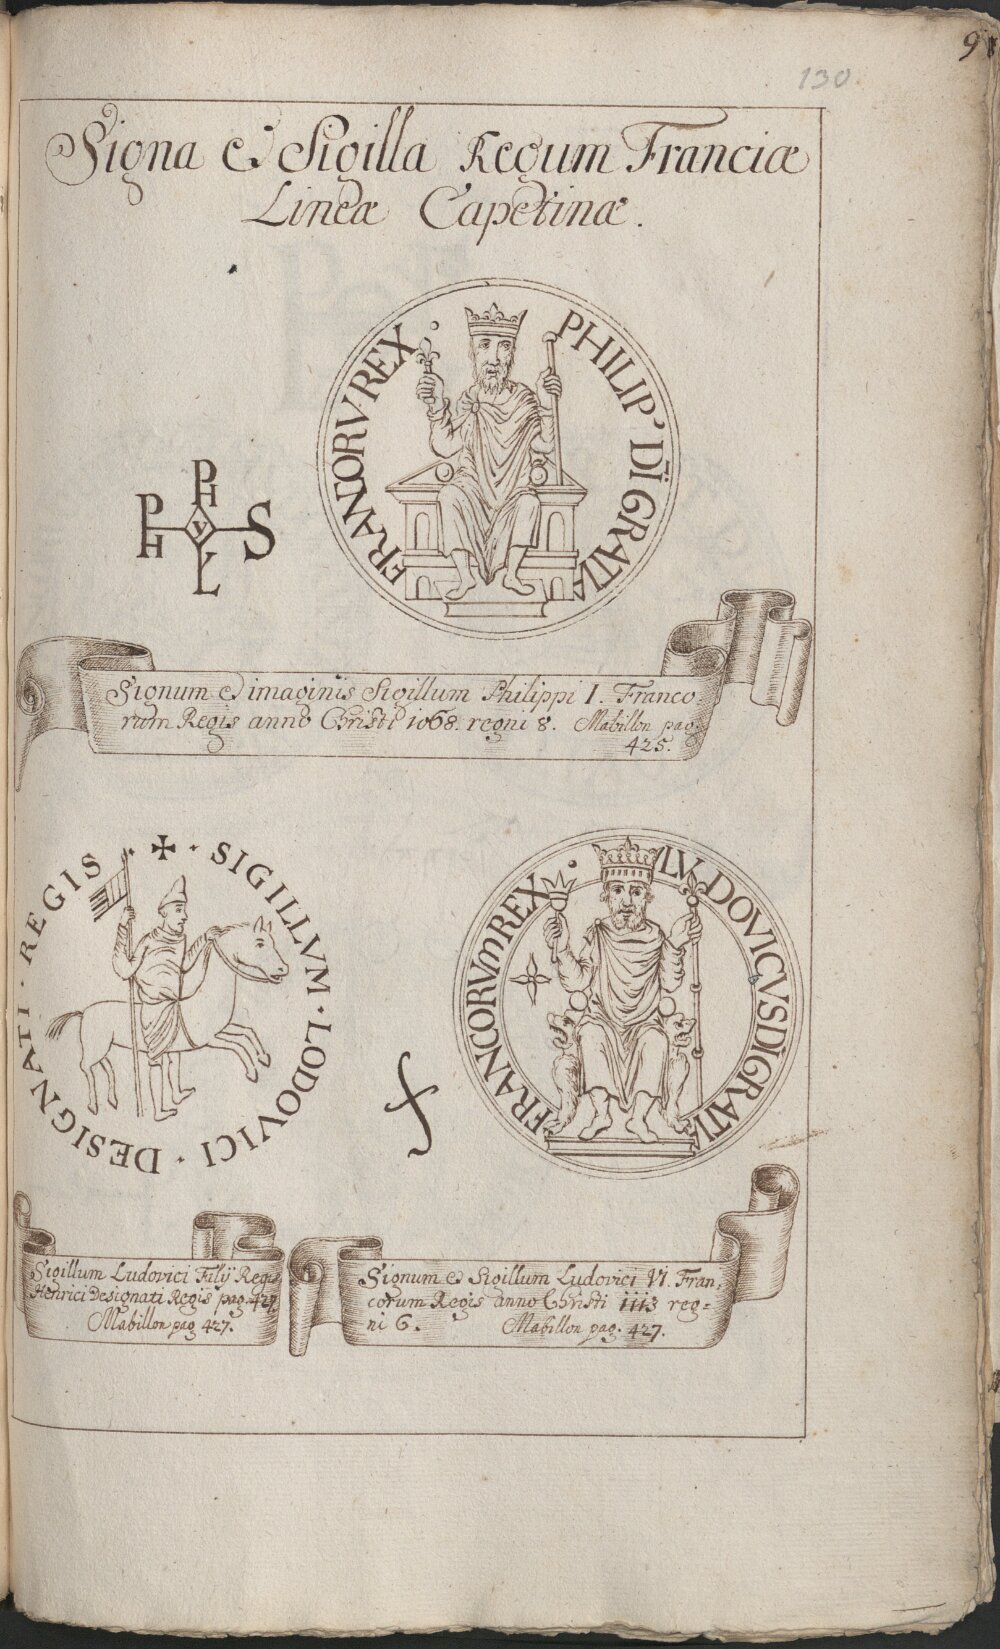 9
130.
Signa et Sigilla Regum Franciæ
Lineæ Capetinæ.
PHILIP' DĪ GRATIA FRANCORV· REX
PH PH y S L
Signum et imaginis Sigillum Philippi I. Franco-
rum Regis anno Christi 1068. regni 8. Mabillon pag.
425.
✠ · SIGILLVM · LODOVICI · DESIGNATI · REGIS ·
LVDOVICUS DĪ GRATIA FRANCORUM REX
Sigillum Ludovici Filij Regis
Henrici Designati Regis pag. 427.
Mabillon pag 427.
Signum et Sigillum Ludovici VI. Fran,
corum Regis anno Christi 1113 reg=
ni 6. Mabillon pag. 427.